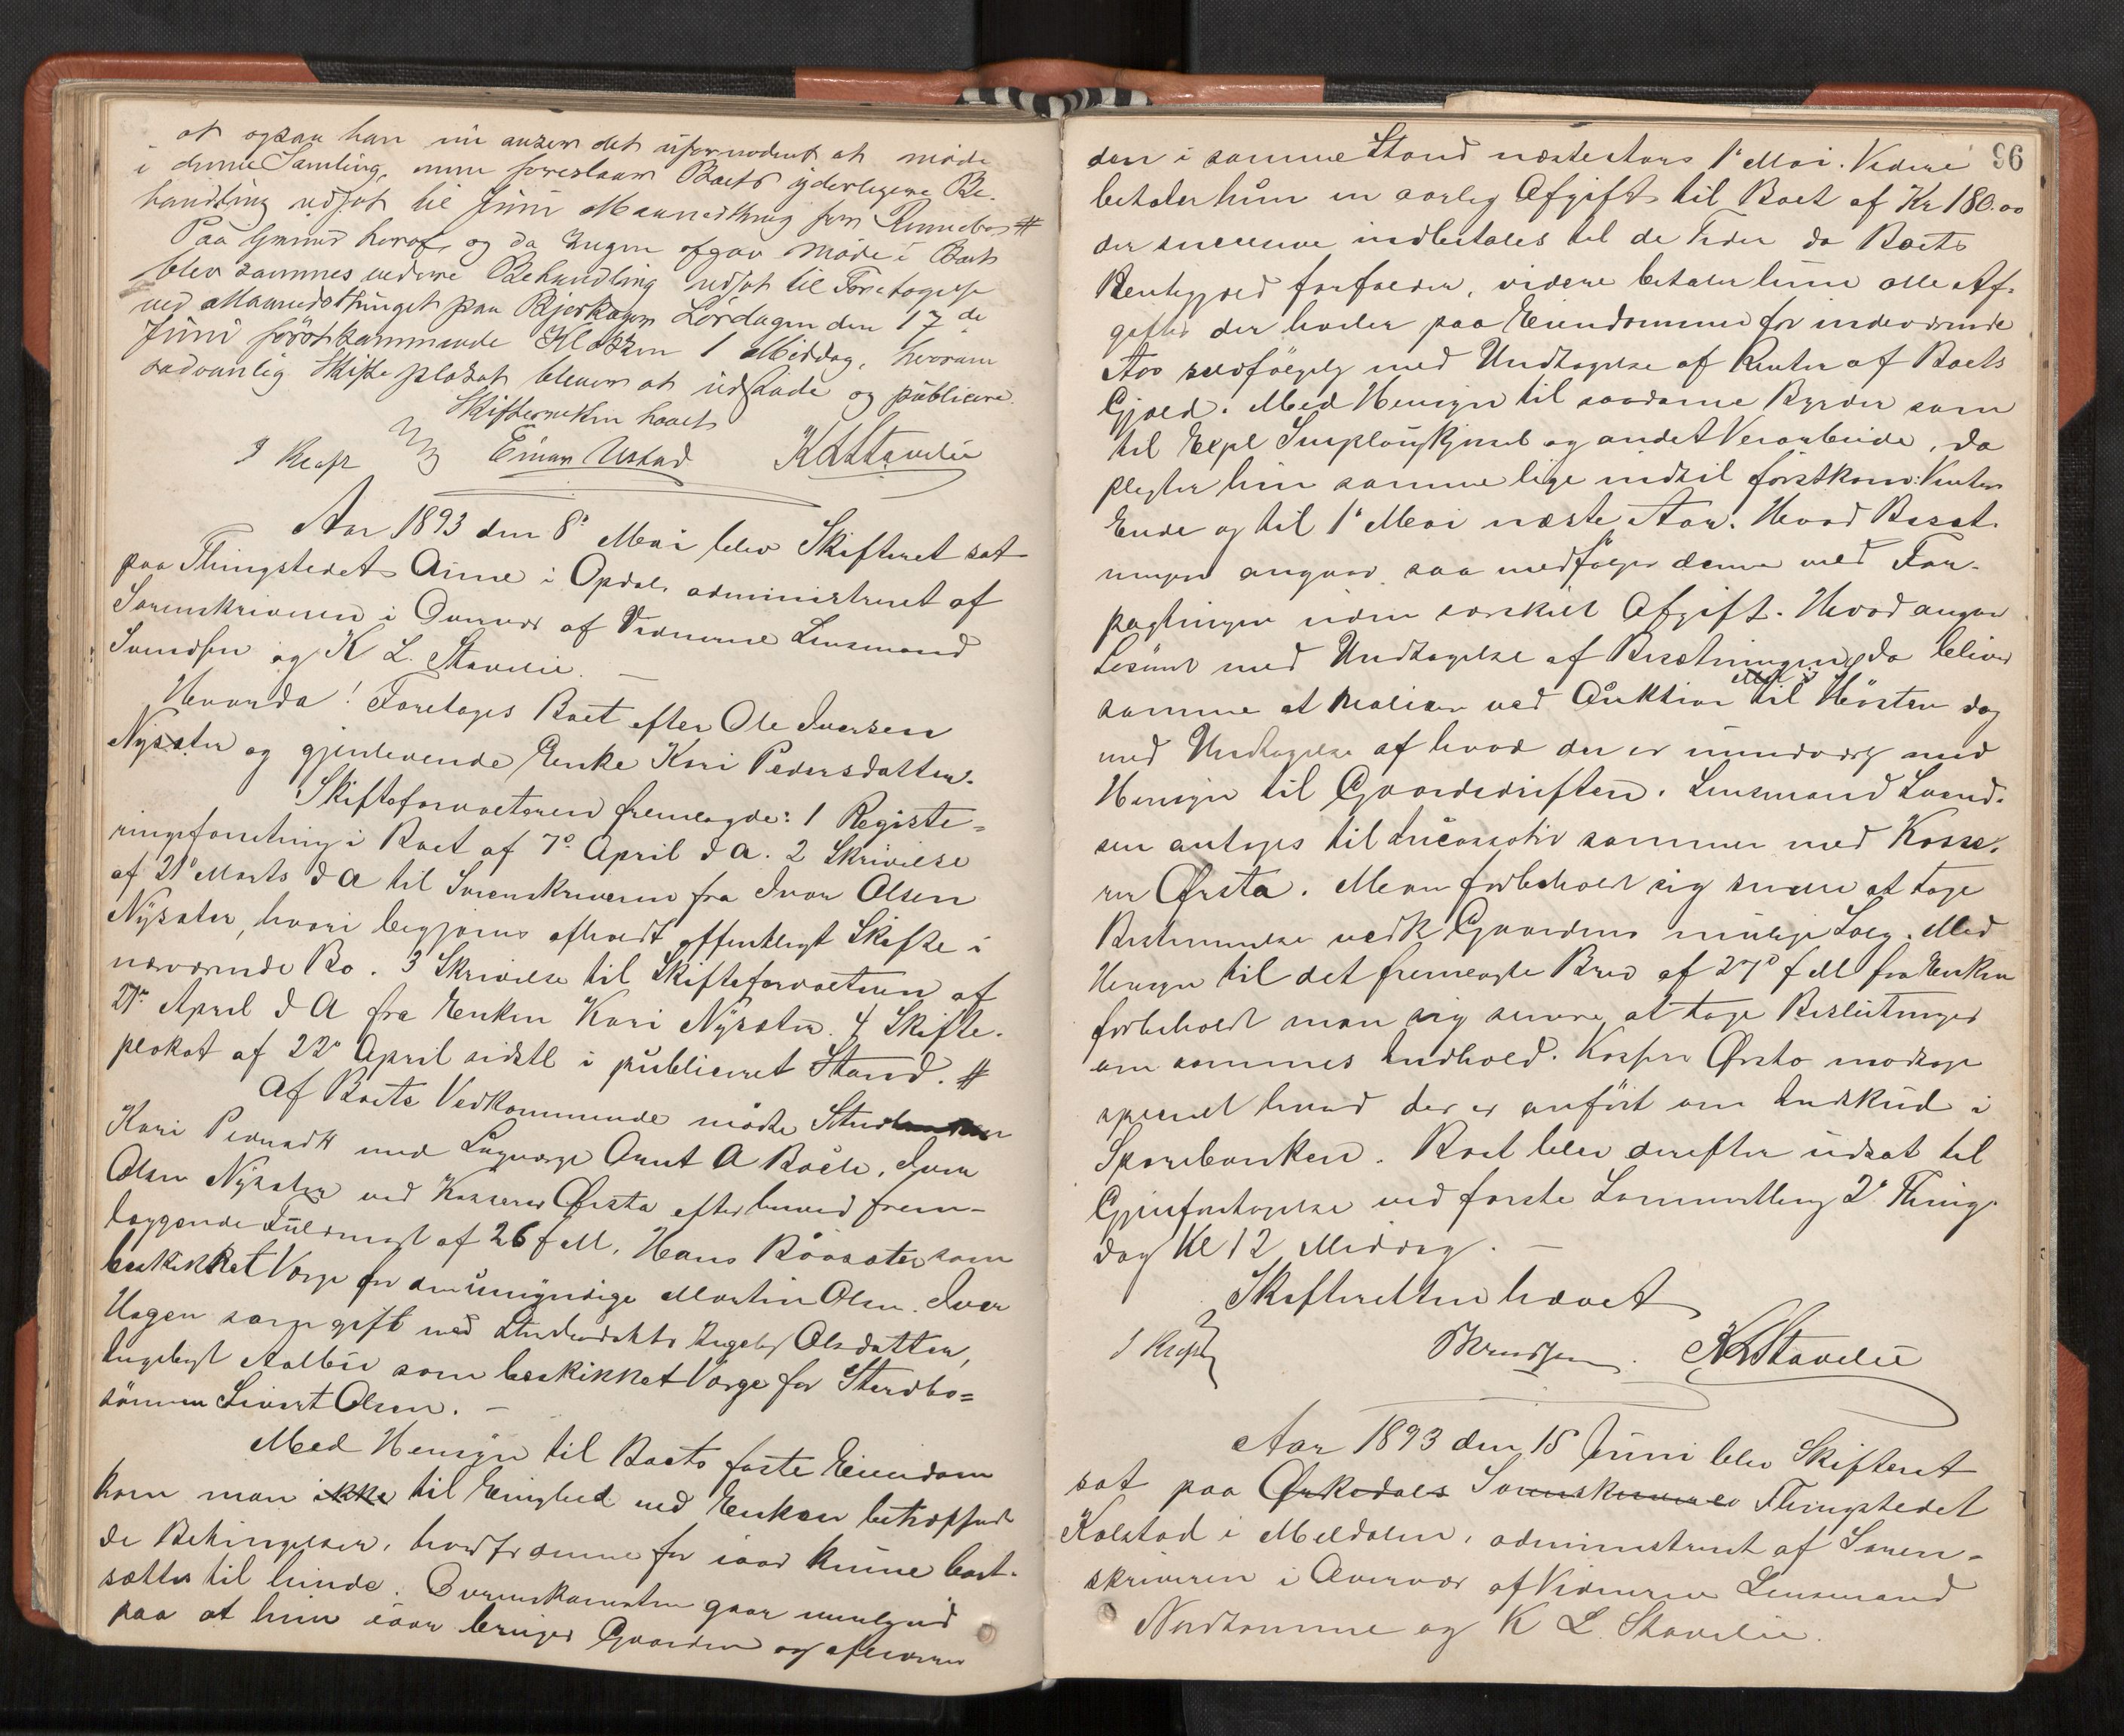 at ogsaa han nu anser det ufornødent at møde
i denne Samling, men foreslaar Boets yderligere Be-
handling udsat til Juni Maanedsthing for Rennebo #
Paa Grund heraf og da Ingen afgav Møde i Boet
blev sammes videre Behandling udsat til Foretagelse
ved Maanedsthinget paa Bjerkager Lørdagen den 17de
Juni førstkommende Klokken 1 Middag, hvorom
sædvanlig Skifteplakat bliver at udstæde og publicere.
Skifteretten hævet
Einar Ustad K L Stavelie
Aar 1893 den 8de Mai blev Skifteret sat
paa Thingstedet Aune i Opdal, administreret af
Sorenskriveren i Overvær af Vidnerne Lensmand
Svendsen og K L. Stavelie. —
Hvorda! Foretages Boet efter Ole Iversen
Nysæter og gjenlevende Enke Kari Pedersdatter.
Skifteforvalteren fremlagde: 1 Registe-
ringsforretning i Boet af 7de April d A. 2 Skrivelse
af 21de Marts d A til Sorenskriveren fra Ivar Olsen
Nysæter, hvori begjæres afholdt offentligt Skifte i
nærværende Bo. 3 Skrivelse til Skifteforvalteren af
27de April d A fra Enken Kari Nysæter. 4 Skifte-
plakat af 22de April sidstl i publiceret Stand. #
Af Boets Vedkommende mødte
Kari Pedersdtt med Laugværge Arnt A Boële, Ivar
Olsen Nysæter ved Kasserer Ørsta efter herved frem-
læggende Fuldmagt af 26 f M. Hans Böasæter som
beskikket Værge for den umyndige Martin Olsen. Iver
Hagen som gift med Ingeb. Olsdatter,
Ingebrigt Aalbu som beskikket Værge for Sterdbo-
sønnen Sivert Olsen. —
Med Hensyn til Boets faste Eiendom
kom man ikke til Enighed med Enken betræffende
de Betingelser, hvorfor denne for iaar kunne bort-
sættes til hende. Overenskomsten gaar nemlig ud
paa at hun iaar bruger Gaarden og afleverer
96
den i samme Stand næstestaars 1de Mai. Videre
betaler hun en aarlig Afgift til Boet af Kr 180.00
der successive indbetales til de Tider da Boets
Rentegjæld forfalder, videre betaler hun alle Af-
gifter der hviler paa Eiendommen for indeværende
Aar selvfølgelig med Undtagelse af Renter af Boets
Gjæld. Med Hensyn til saadanne Byrder som
til Expl Sneplougkjørsel og andet Veiarbeide, da
pligter hun samme lige indtil førstkom: Vinters
Ende og til 1de Mai næste Aar. Hvad Besæt-
ningen angaar, saa medfølger denne ved For-
pagtningen uden særskilt Afgift. Hvad angaar
Løsøret med Undtagelse af Besætningen, da bliver
samme at realisere ved Auktion til Høsten dog
med Undtagelse af hvad der er nødvendig med
Hensyn til Gaardsdriften. Lensmand Svend-
sen antoges til Incassator sammen med Kasse-
rer Ørsta. Man forbeholdt sig senere at tage
Bestemmelse vedk Gaardens mulige Salg. Med
Hensyn til det fremlagte Brev af 27de f M fra Enken
forbeholdt man sig senere at tage Beslutninger
om sammes Indhold. Kasserer Ørsta modsage
specielt hvad der er anført om Indskud i
Sparebanken. Boet blev derefter udsat til
Gjenforetagelse ved første Sommerthing 2de Thing-
dag Kl 12 Middag. —
Skifteretten hævet
Svendsen. K L Stavelie
Aar 1893 den 15 Juni blev Skifteret
sat paa Ørkedals Sorenskriveri Thingstedet
Kalstad i Meldalen, administreret af Soren-
skriveren i Overvær af Vidnerne Lensmand
Nordtømme og K L. Stavelie.